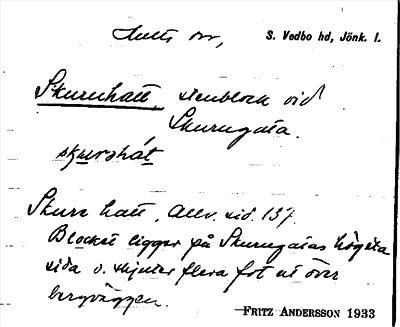 Hults sn, S. Vedbo hd, Jönk. l.
Skuruhatt, stenblock vid
Skurugata.
skụrshát
Skuru hatt, Allv. sid. 137.
Blocket ligger på Skurugatas högsta
sida o. skjuter flera fot ut över
bergväggen.
FRITZ ANDERSSON 1933